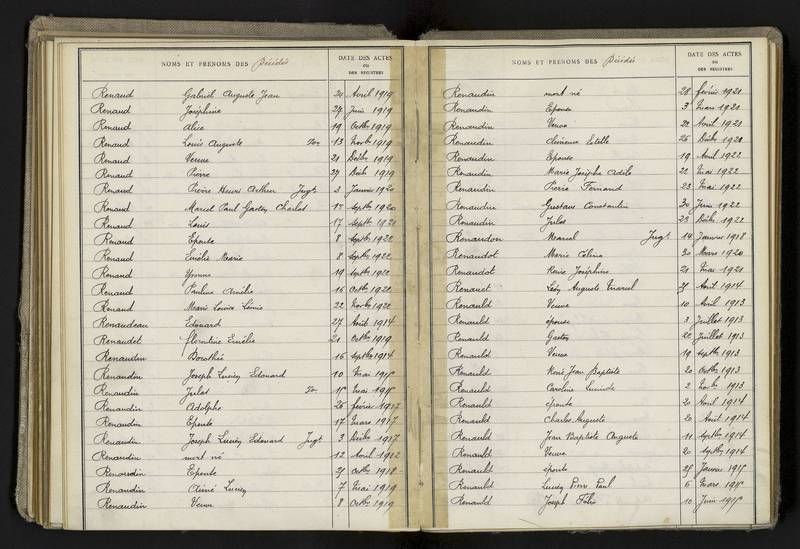 NOMS ET PRÉNOMS DES Décédés DATE DES ACTES
OU
DES REGISTRES
Renaud Gabriel Auguste Jean Avril 1919
Renaud Joséphine 27 Juin 1919
Renaud Alice 19 Octbre 1919
Renaud Louis Auguste 13 Novbre 1919
Renaud Veuve Décbre 1919
Renaud Pierre 27 Décb 1919
Renaud Pierre Henri Arthur Jugt 3 Janvier 1920
Renaud Marcel Paul Gaston Charles 17 Septbre 1920
Renaud Louis 17 Septbre
Renaud Epouse 8 Septbre 1922
Renaud Emélie Marie 8 Septbre 1922
Renaud Yvonne 19 Septbre
Renaud Pauline Amélie 16 Octbre
Renaud Marie Louise 22 Novbre
Renaudeau Edouard 27 Août 1914
Renaudet Florentine Emélie Octbre 1919
Renaudin Dorothée 16 Septbre 1914
Renaudin Joseph Lucien Edouard 10 Mai
Renaudin Jules Mai
Renaudin Adolphe 26 février 1917
Renaudin Epouse 17 Mars 1917
Renaudin Joseph Lucien Edouard Jugt 3 Décbre 1917
Renaudin mort né 12 Avril 1912
Renaudin Epouse Octbre 1918
Renaudin Aimé Lucien 7 Mai 1919
Renaudin Veuve 8 Octbre 1919
NOMS ET PRÉNOMS DES Décédés DATE DES ACTES
OU
DES REGISTRES
Renaudin mort né 28 février
Renaudin Epouse 3 Mars
Renaudin Veuve Avril
Renaudin Clémence Estelle 26 Décbre
Renaudin Epouse 19 Avril 1922
Renaudin Marie Josèphe Adèle 22 Mai 1922
Renaudin Pierre Fernand 23 Mai 1922
Renaudin Gustave Constantin 30 Juin 1922
Renaudin Jules 23 Décbre 1922
Renaudon Marcel Jugt 14 Janvier 1918
Renaudot Marie Célina 30 Mars 1920
Renaudot Marie Joséphine Mai
Renauet Léon Auguste Marcel Avril 1914
Renauld Veuve 10 Avril 1913
Renauld épouse 3 Juillet 1913
Renauld Gaston 22 Juillet 1913
Renauld Veuve 19 Septbre 1913
Renauld René Jean Baptiste 20 Octbre 1913
Renauld Caroline Lucinde 2 Novbre 1913
Renauld épouse 20 Avril 1914
Renauld Charles Auguste 20 Août 1914
Renauld Jean Baptiste Auguste 11 Septbre 1914
Renauld Veuve 20 Septbre 1914
Renauld épouse Janvier
Renauld Lucien Pierre Paul 6 Mars
Renauld Joseph Félix 10 Juin